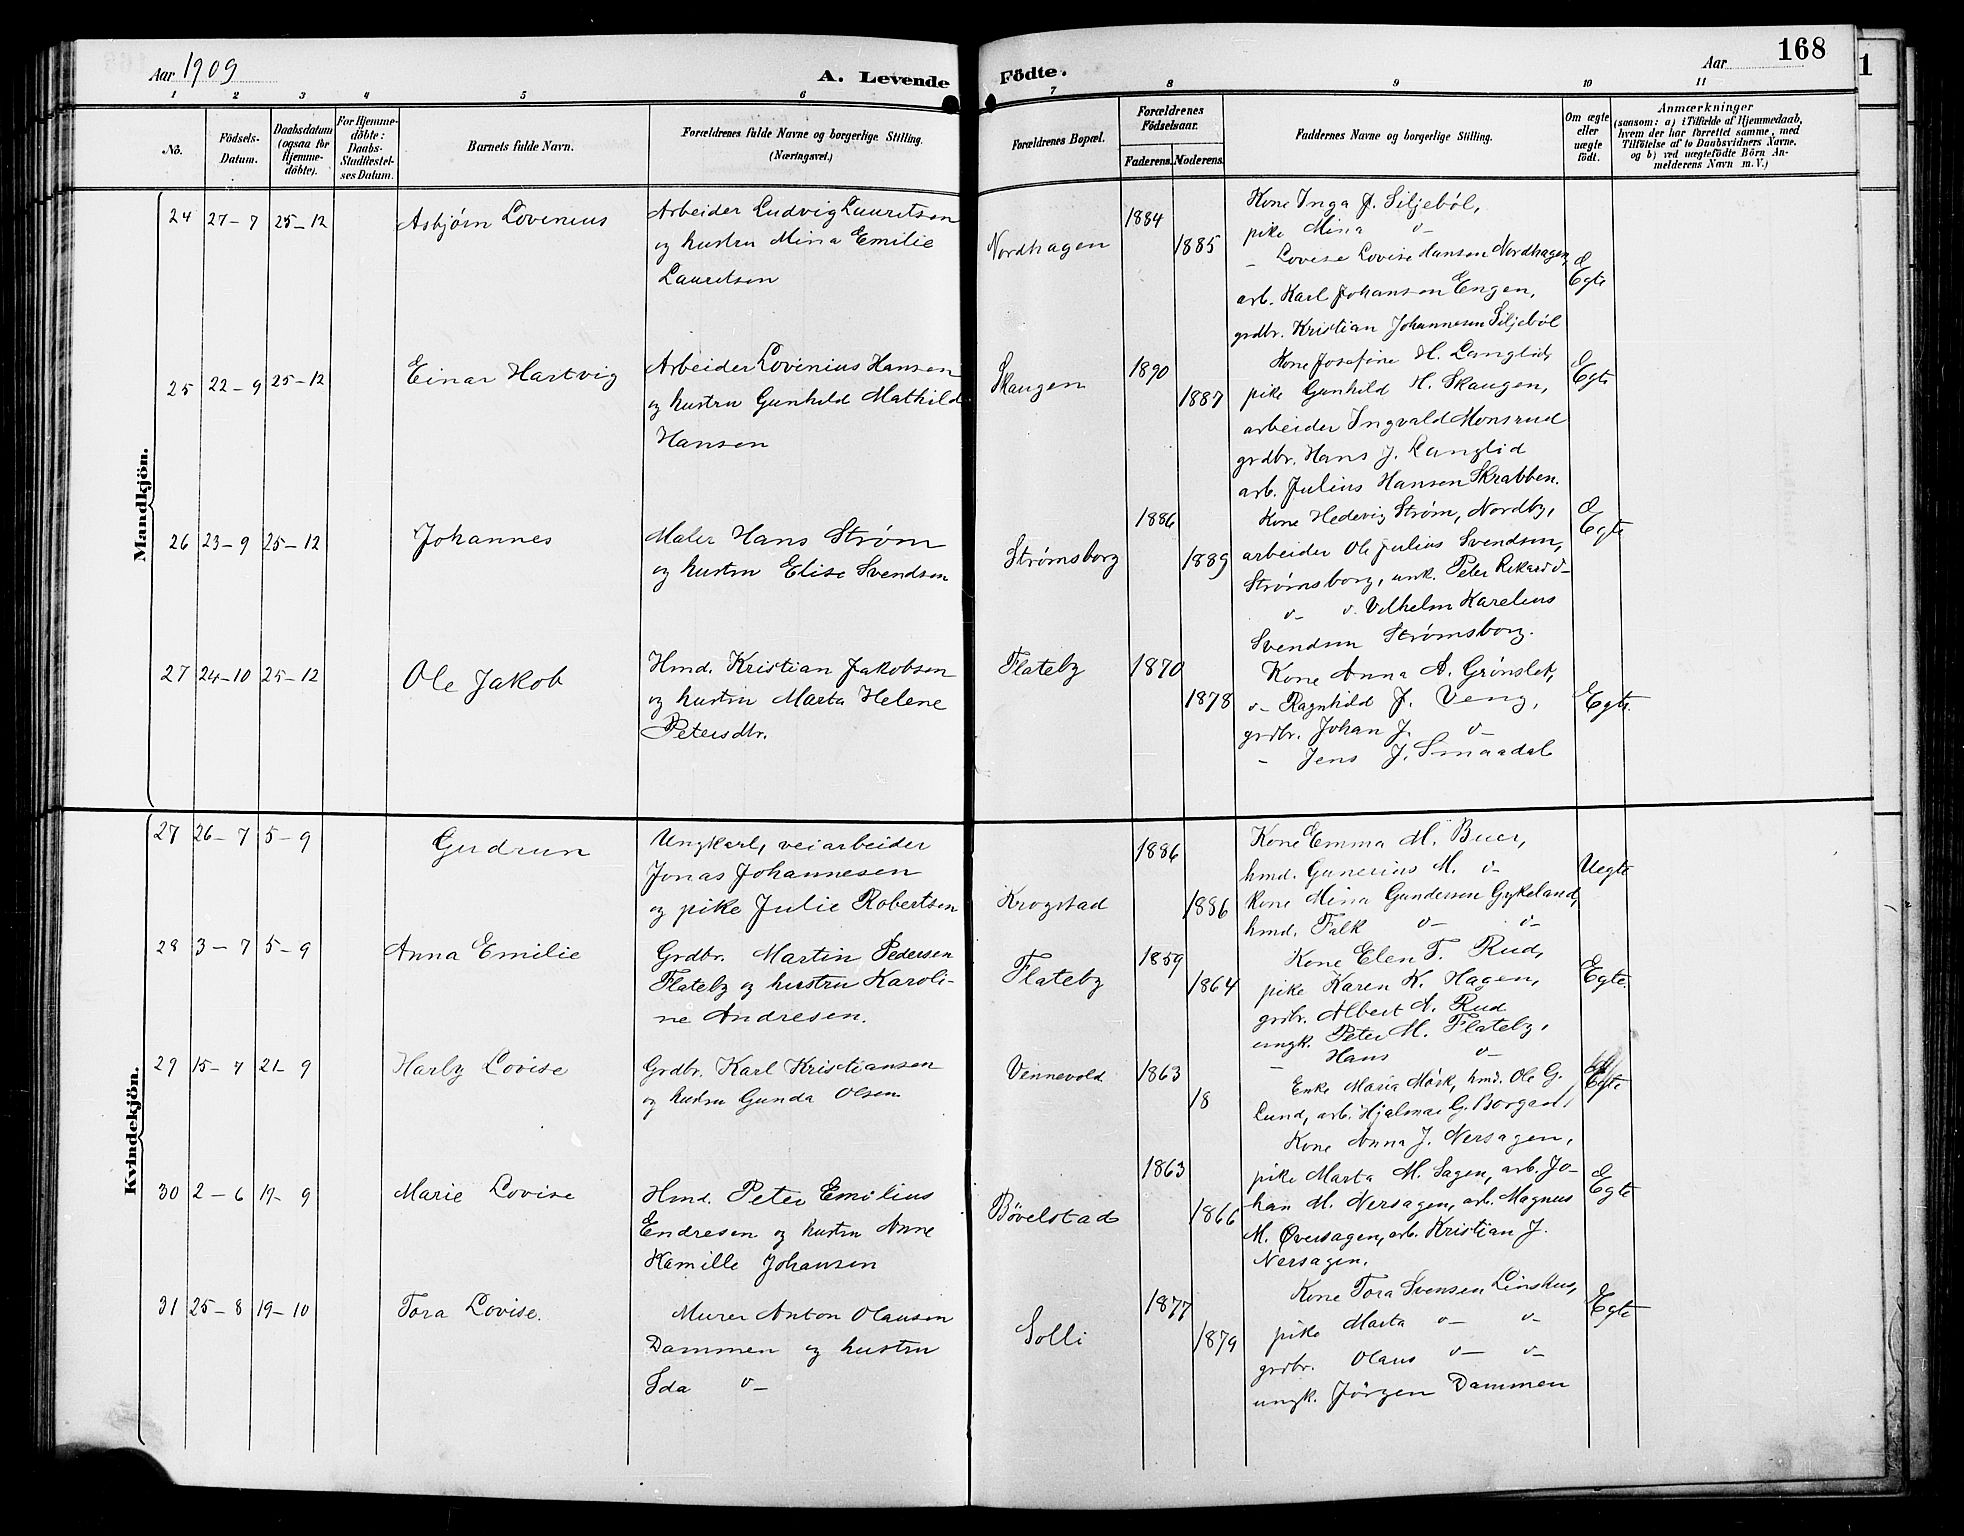 Aar 1909
A. Levende Födte.
Aar
168
1
1 2 3 4 5 6 7 8 9 10 11
No.
Födsels-
Datum.
Daabsdatum
(ogsaa for
Hjemme-
döbte).
For Hjemme-
döbte:
Daabs-
Stadfæstel-
ses Datum.
Barnets fulde Navn.
Forældrenes fulde Navne og borgerlige Stilling.
(Næringsvei.)
Forældrenes Bopæl.
Forældrenes
Födselsaar.
Faderens.
Moderens.
Faddernes Navne og borgerlige Stilling.
Om ægte
eller
uægte
født.
Anmærkninger
(saasom: a) i Tilfælde af Hjemmedaab,
hvem der har forrettet samme, med
Tilföielse af to Daabsvidners Navne,
og b) ved uægtefödte Börn An-
melderens Navn m. V.)
Mandkjön.
24 27-7 25-12 Asbjørn Lovinius
Arbeider Ludvig Lauritsen
og hustru Mina Emilie
Lauritsen
Nordhagen 1884 1885
Kone Inga J. Siljebøl,
pike Mina v-
- Lovise Lovise Hansen Nordhagen,
arb. Karl Johansen Engen,
grdbr. Kristian Johannesen Siljebøl
Egte
25 22-9 25-12 Einar Hartvig
Arbeider Lovinius Hansen
og hustru Gunhild Mathild
Hansen
Skaugen 1890 1887
Kone Josefine H. Langlid,
pike Gunhild M. Skaugen,
arbeider Ingvald Monsrud
grdbr. Hans J. Langlid
arb. Julius Hansen Skrabben.
Egte
26 23-9 25-12 Johannes
Maler Hans Strøm
og hustru Elise Svendsen
Strømsborg 1886 1889
Kone Hedevig Strøm, Nordby,
arbeider Ole Julius Svendsen,
Strømsborg, unk. Peter Rikard v-
v- v. Vilhelm Karelius
Svendsen Strømsborg.
Egte
27 24-10 25-12 Ole Jakob
Hmd. Kristian Jakobsen
og hustru Marta Helene
Petersdtr.
Flateby 1870 1878
Kone Anna A. Grønslet,
v- Ragnhild J. Veng,
grdbr. Johan J. v-
- Jens J. Smaadal
Egte.
Kvindekjön.
27 26-7 5-9 Gudrun
Ungkarl, veiarbeider
Jonas Johannesen
og pike Julie Robertsen
Krogstad 1886 1886
Kone Emma M. Buer,
hmd. Gunerius M. v-
kone Mina Gundersen Gykeland,
hmd. Falk v- v-
Uegte
28 3-7 5-9 Anna Emilie
Grdbr. Martin Pedersen
Flateby og hustru Karoli-
ne Andresen.
Flateby 1859 1864
Kone Elen T. Rud,
pike Karen K. Hagen,
grdbr. Albert A. Rud
ungk. Peter M. Flateby,
- Hans v-
Egte.
29 15-7 21-9 Harly Lovise
Grdbr. Karl Kristiansen
og hustru Gunda Olsen
Vennevold 1863 18
Enke Maria Mørk, hmd. Ole G.
Lund, arb. Hjalmar G. Borgen,
Egte
30 2-6 19-9 Marie Lovise
Hmd. Peter Emilius
Endresen og hustru Anne
Kamille Johansen
Bøvelstad 1863 1866
Kone Anna J. Nersagen,
pike Marta M. Sagen, arb. Jo-
han M. Nersagen, arb. Magnus
M. Øversagen, arb. Kristian J.
Nersagen.
Egte
31 25-8 19-10 Tora Lovise.
Murer Anton Olausen
Dammen og hustru
Ida v-
Solli 1877 1879
Kone Tora Svensen Linshus,
pike Marta v- v-
grdbr. Olaus v- v-
ungk. Jörgen Dammen
Egte